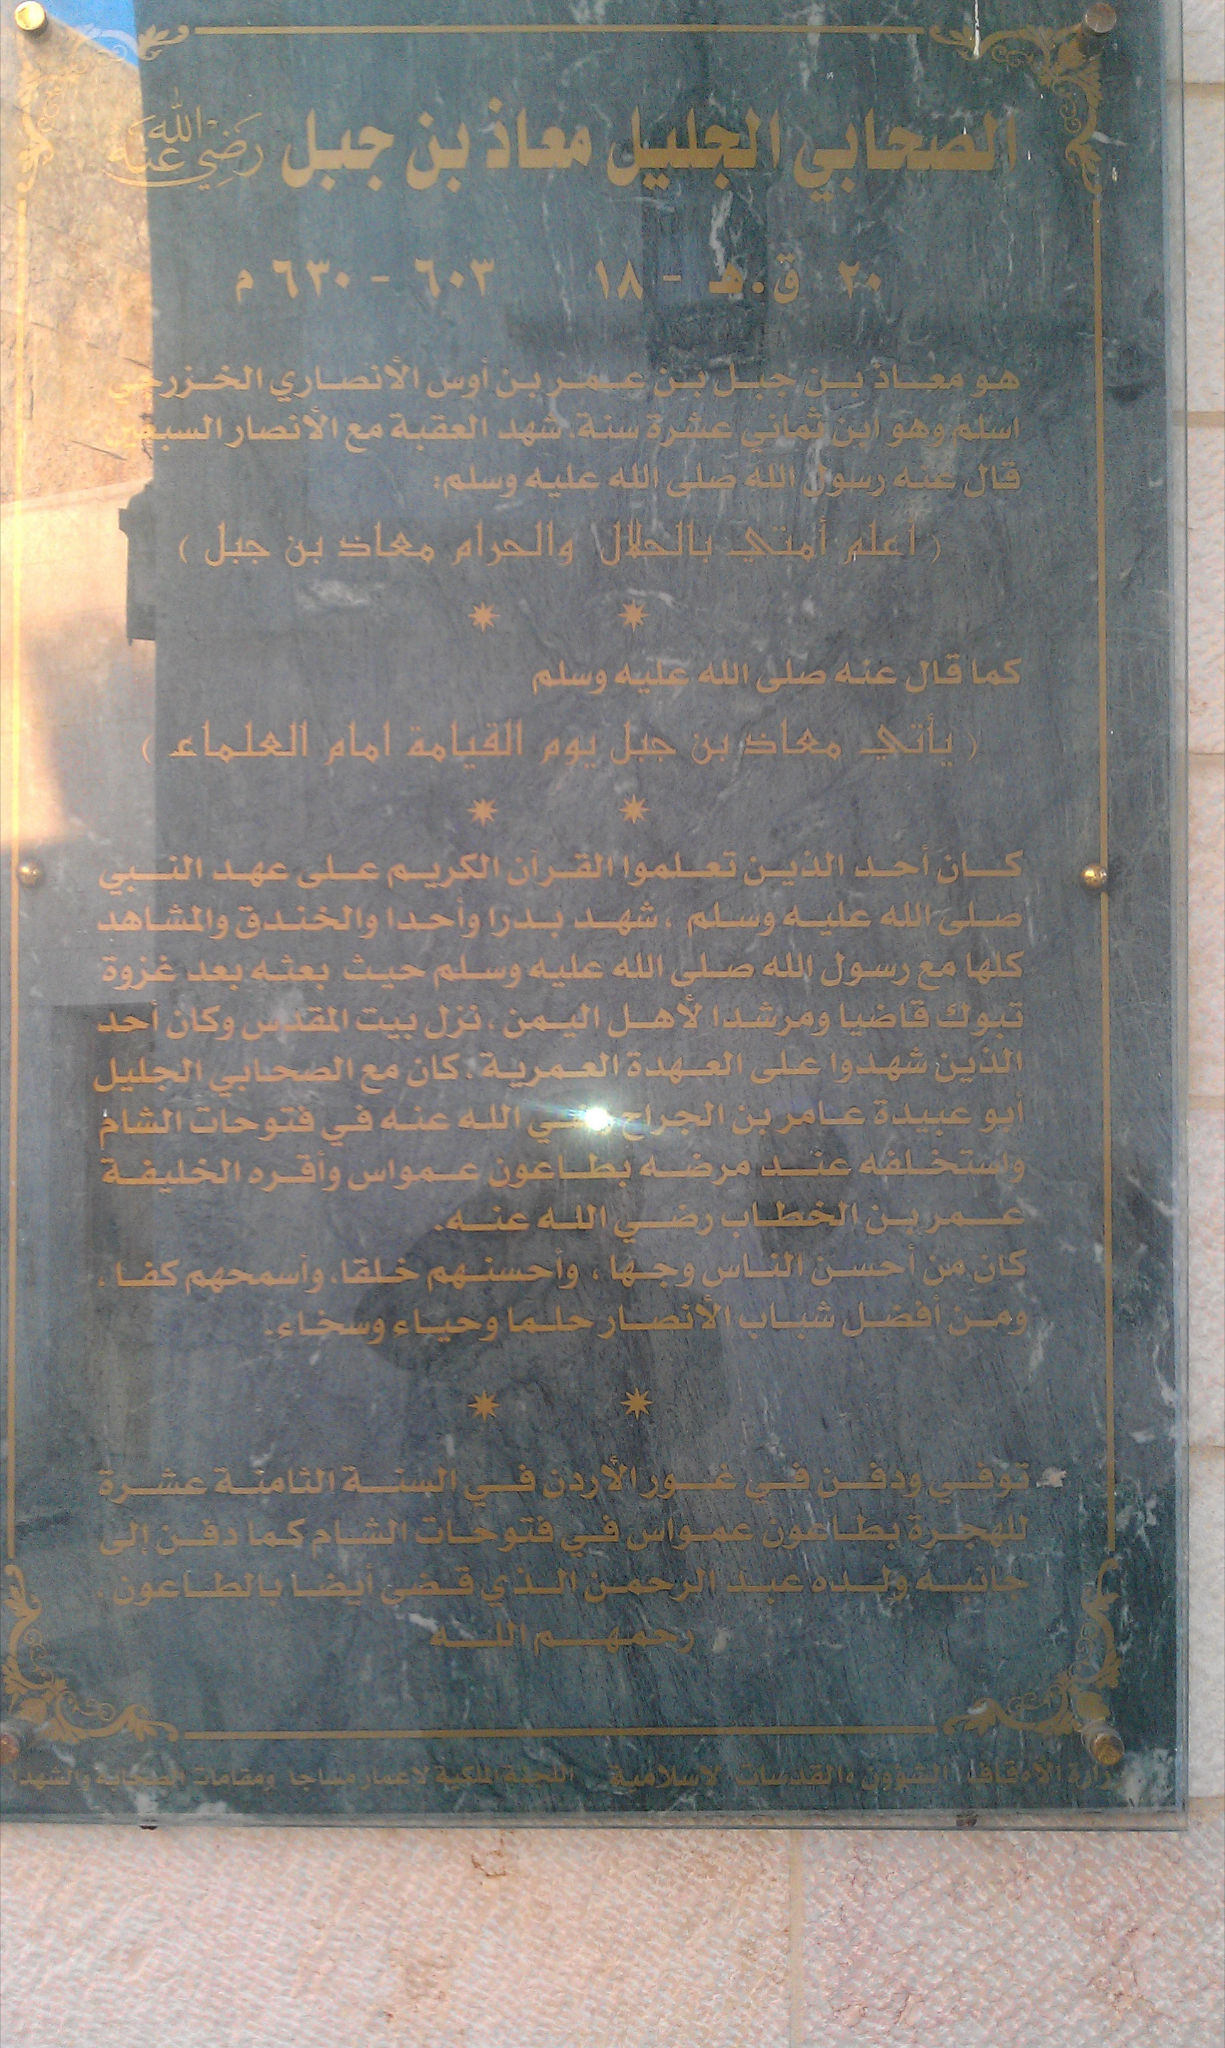 الصحابي الجليل معاذ بن جبل رَضِيَ اللهُ عَنْهُ
٢٠ ق.هـ - ١٨ ٦٠٣ - ٦٣٠ م
هو معاذ بن جبل بن عمر بن أوس الأنصاري الخزرجي
اسلم وهو ابن ثماني عشرة سنة، شهد العقبة مع الأنصار السبعين
قال عنه رسول الله صلى الله عليه وسلم:
( أعلم أمتي بالحلال والحرام معاذ بن جبل )
كما قال عنه صلى الله عليه وسلم
( يأتي معاذ بن جبل يوم القيامة امام العلماء )
كان أحد الذين تعلموا القرآن الكريم على عهد النبي
صلى الله عليه وسلم ، شهد بدرا وأحدا والخندق والمشاهد
كلها مع رسول الله صلى الله عليه وسلم حيث بعثه بعد غزوة
تبوك قاضيا ومرشدا لأهل اليمن ، نزل بيت المقدس وكان أحد
الذين شهدوا على العهدة العمرية ، كان مع الصحابي الجليل
أبو عبيدة عامر بن الجراح رضي الله عنه في فتوحات الشام
واستخلفه عند مرضه بطاعون عمواس وأقره الخليفة
عمر بن الخطاب رضي الله عنه.
كان من أحسن الناس وجها ، وأحسنهم خلقا، وأسمحهم كفا ،
ومن أفضل شباب الأنصار حلما وحياء وسخاء.
توفي ودفن في غور الأردن في السنة الثامنة عشرة
للهجرة بطاعون عمواس في فتوحات الشام كما دفن إلى
جانبه ولده عبد الرحمن الذي قضى أيضا بالطاعون .
رحمهم الله
وزارة الأوقاف والشؤون والمقدسات الإسلامية اللجنة الملكية لاعمار مساجد ومقامات الصحابة والشهداء